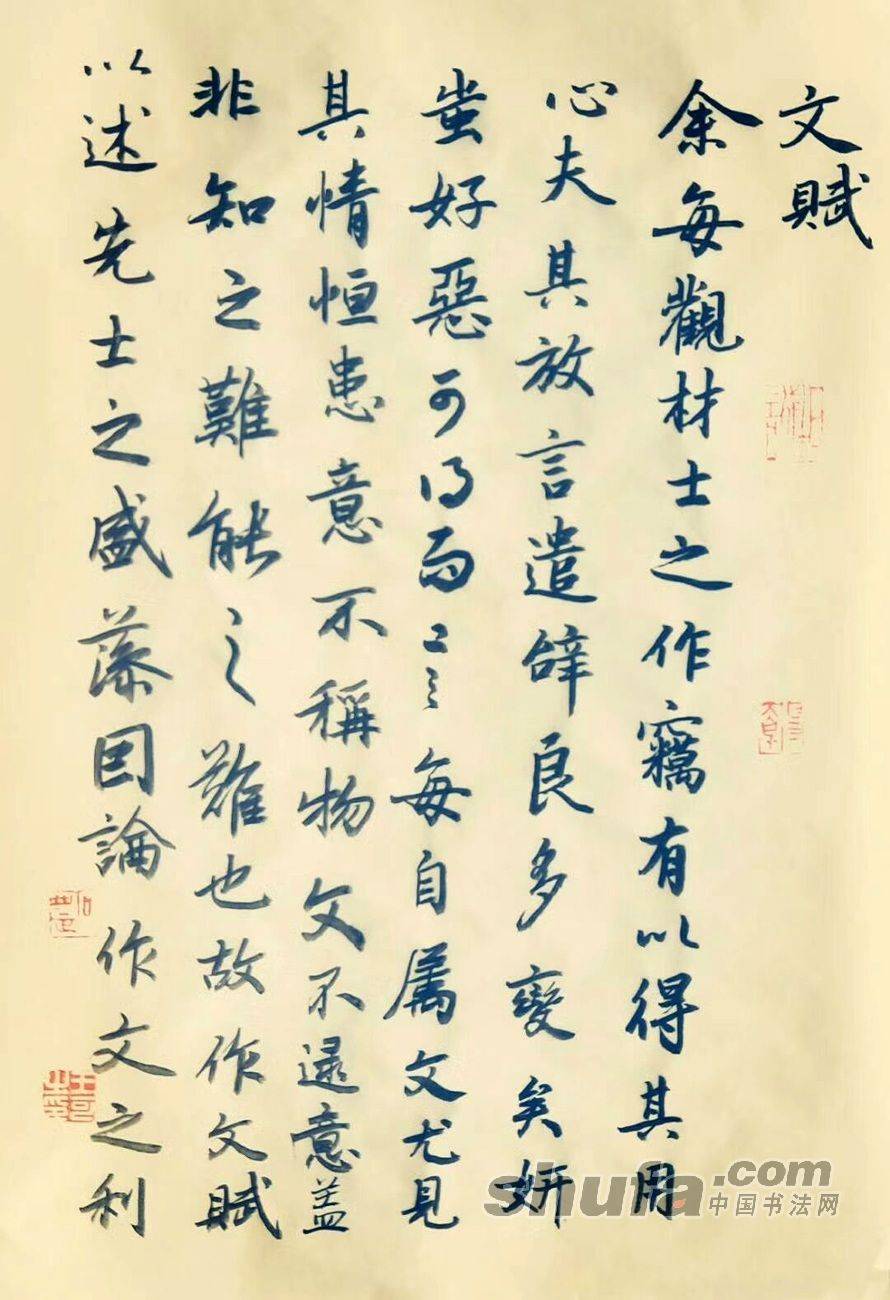 文賦
余每觀材士之作竊有以得其用
心夫其放言遣辝良多變矣妍
蚩好惡可得而言每自属文尤見
其情恒患意不稱物文不逮意盖
非知之難能之難也故作文賦
以述先士之盛藻因論作文之利
shufa.com
中国书法网